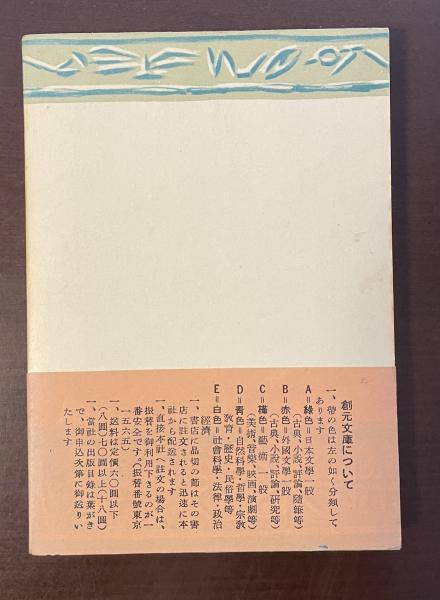 創元文庫について
一、帶の色は左の如く分類して
あります
A＝綠色＝日本文學一般
（古典、小說、評論、隨筆等）
B＝赤色＝外國文學一般
（古典、小說、評論、研究等）
C＝樺色＝藝術一般
（美術、音樂、映画、演劇等）
D＝靑色＝自然科學・哲學・宗敎
敎育・歷史・民俗學等
E＝白色＝社會科學・法律・政治
經濟
一、書店に品切の節はその書
店に註文されると迅速に本
社から配送されます
一、直接本社へ註文の場合は、
振替を御利用下さるのが一
番安全です。（振替番號東京
一五六五）
一、送料は定價六〇圓以下
（八圓）七〇圓以上（十八圓）
一、當社の出版目錄は葉がき
で、御申込次第に御送りい
たします